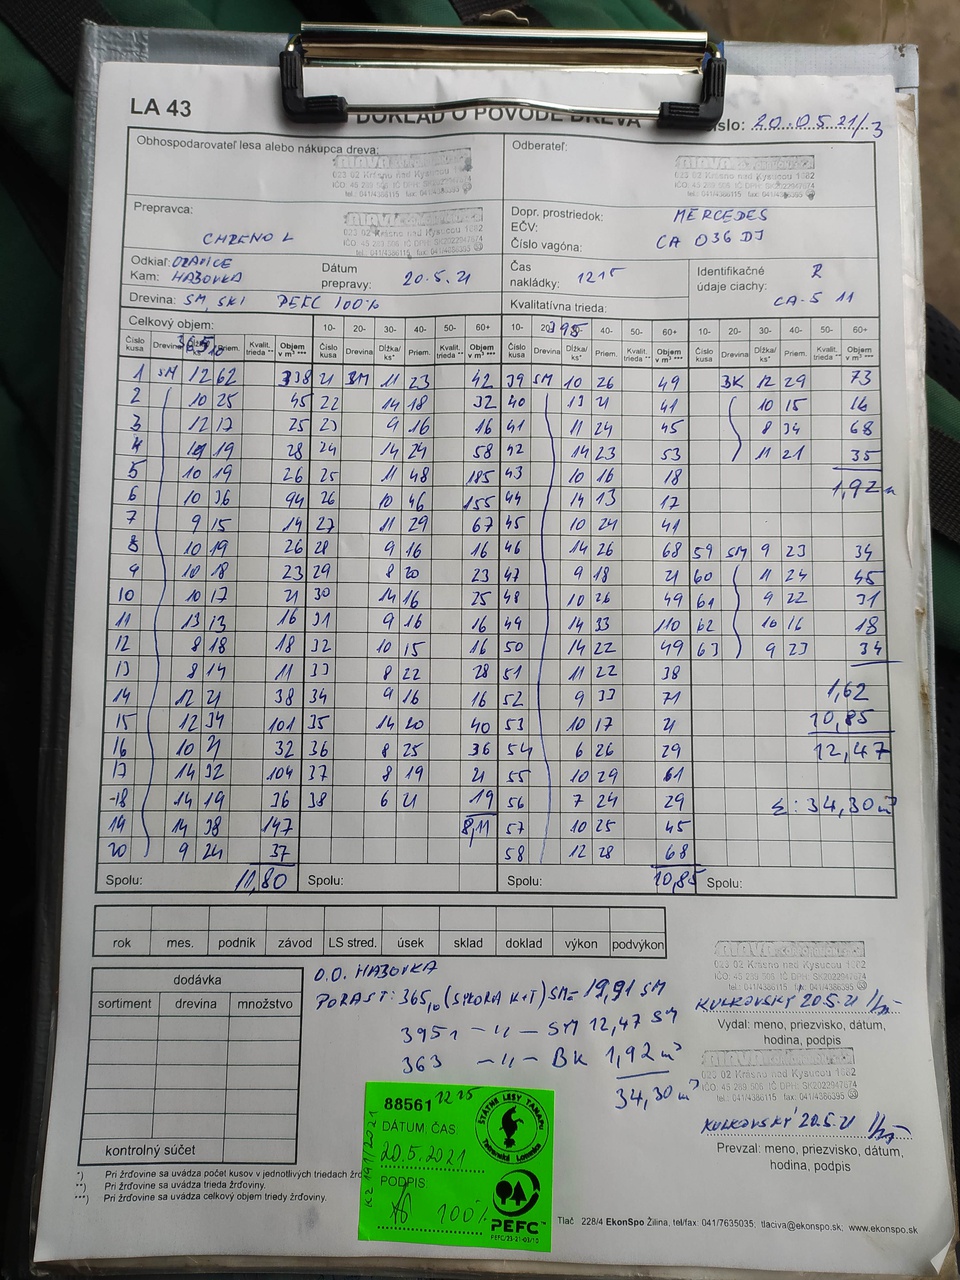 LA 43
DOKLAD O PÔVODE DREVA
číslo: 20.05 21/3
Obhospodarovateľ lesa alebo nákupca dreva:
023 02 Krásno nad Kysucou 1682
Odberateľ:
023 02 Krásno nad Kysucou 1682
Prepravca:
023 02 Krásno nad Kysucou 1682
CHRENO L
Dopr. prostriedok: MERCEDES
EČV:
Číslo vagóna: CA 036 DJ
Odkiaľ: ORAVICE
Kam: HABOVKA
Dátum prepravy: 20.5.21
Čas nakládky: 12 15
Identifikačné údaje ciachy: R
CA-S 11
Drevina: SM, SKI PEFC 100%
Kvalitatívna trieda:
Celkový objem: 10- 20- 30- 40- 50- 60+ 10- 20- 395 40- 50- 60+ 10- 20- 30- 40- 50- 60+
Číslo kusa Drevina Priem. Kvalit. trieda ** Objem v m³ *** Číslo kusa Drevina Dĺžka/ ks* Priem. Kvalit. trieda ** Objem v m³ *** Číslo kusa Drevina Dĺžka/ ks* Priem. Kvalit. trieda ** Objem v m³ *** Číslo kusa Drevina Dĺžka/ ks* Priem. Kvalit. trieda ** Objem v m³ ***
1 SM 12 62 338 21 SM 11 23 42 39 SM 10 26 49 BK 12 29 73
2 10 25 45 22 14 18 32 40 13 21 41 10 15 16
3 12 17 25 23 9 16 16 41 11 24 45 8 34 68
4 19 28 24 14 24 58 42 14 23 53 11 21 35
5 10 19 26 25 11 48 185 43 10 16 18 1,92
6 10 36 94 26 10 46 155 44 14 13 17
7 9 15 14 27 11 29 67 45 10 24 41
8 10 19 26 28 9 16 16 46 14 26 68 59 SM 9 23 34
9 10 18 23 29 8 20 23 47 9 18 21 60 11 24 45
10 10 17 21 30 14 16 25 48 10 26 49 61 9 22 31
11 13 13 16 31 9 16 16 49 14 33 110 62 10 16 18
12 8 18 18 32 10 15 16 50 14 22 49 63 9 23 34
13 8 14 11 33 8 22 28 51 11 22 38
14 12 21 38 34 9 16 16 52 9 33 71 1,62
15 12 34 101 35 14 20 40 53 10 17 21 10,85
16 10 21 32 36 8 25 36 54 6 26 29 12,47
17 14 32 104 37 8 19 21 55 10 29 61
18 14 19 36 38 6 21 19 56 7 24 29 Σ: 34,30 m³
19 14 38 147 8,11 57 10 25 45
20 9 24 37 58 12 28 68
Spolu: 11,80 Spolu: Spolu: 10,85 Spolu:
rok mes. podnik závod LS stred. úsek sklad doklad výkon podvýkon
dodávka
sortiment drevina množstvo
kontrolný súčet
O.O. HABOVKA
PORAST: 365 10 (SMORA K+T) SM= 19,91 SM
395 1 -„- SM 12,47 SM
363 -„- BK 1,92 m³
34,30 m³
023 02 Krásno nad Kysucou 1682
KULKOVSKÝ 20.5.21
Vydal: meno, priezvisko, dátum, hodina, podpis
023 02 Krásno nad Kysucou 1682
KULKOVSKÝ 20.5.21
Prevzal: meno, priezvisko, dátum, hodina, podpis
88561 12 15
DÁTUM, ČAS:
20.5.2021
PODPIS:
100%
ŠTÁTNE LESY TANAPU
Tatranská Lomnica
PEFC
PEFC/23-21-03/10
*) Pri žrďovine sa uvádza počet kusov v jednotlivých triedach
**) Pri žrďovine sa uvádza trieda žrďoviny.
***) Pri žrďovine sa uvádza celkový objem triedy žrďoviny.
Tlač 228/4 EkonSpo Žilina, tel/fax: 041/7635035, tlaciva@ekonspo.sk, www.ekonspo.sk